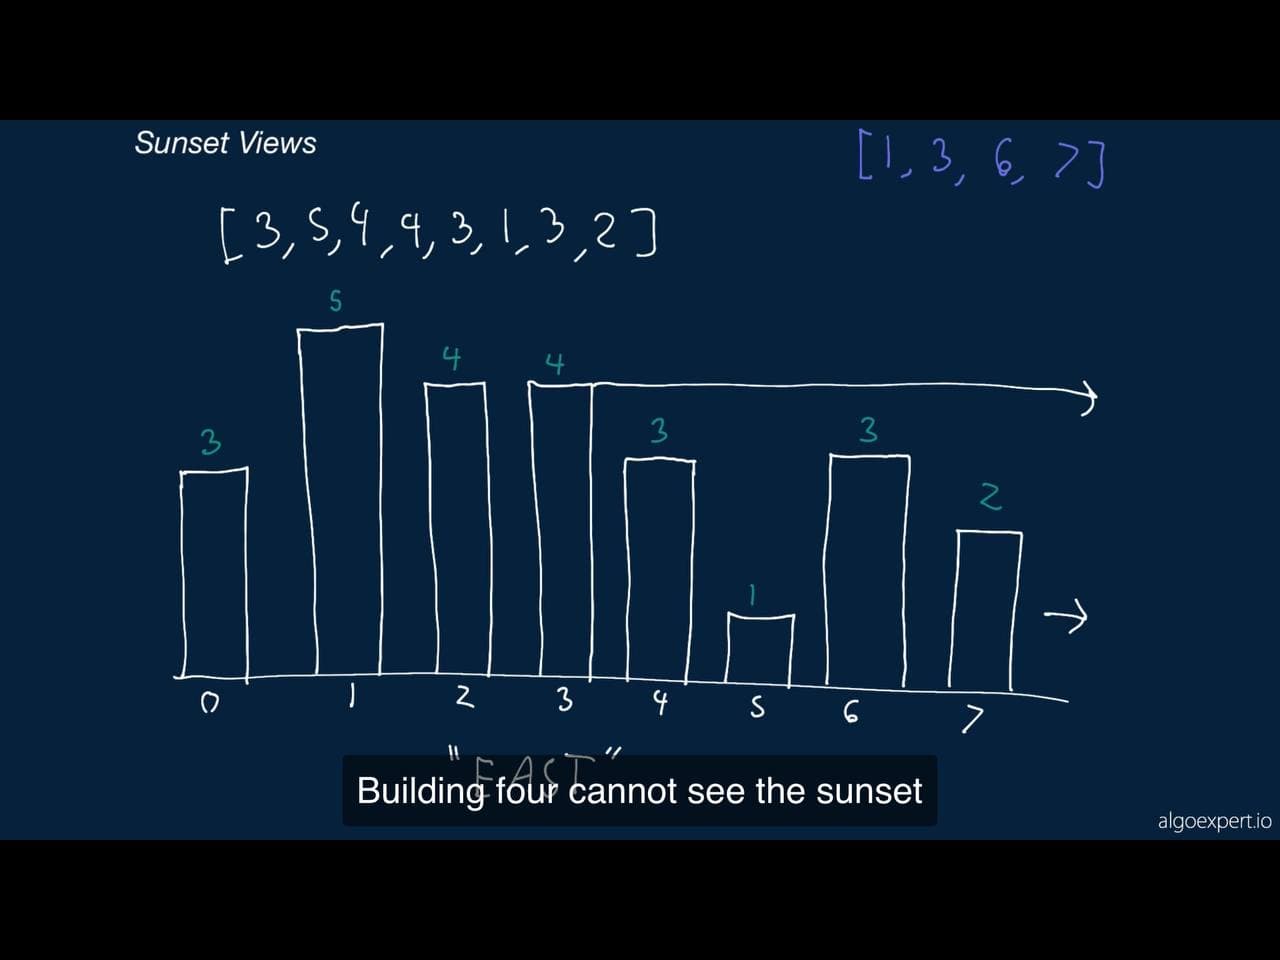 Sunset Views
[1, 3, 6, 7]
[3, 5, 4, 4, 3, 1, 3, 2]
5
4 4
3 3 3
2
1
0 1 2 3 4 5 6 7
"EAST"
Building four cannot see the sunset
algoexpert.io